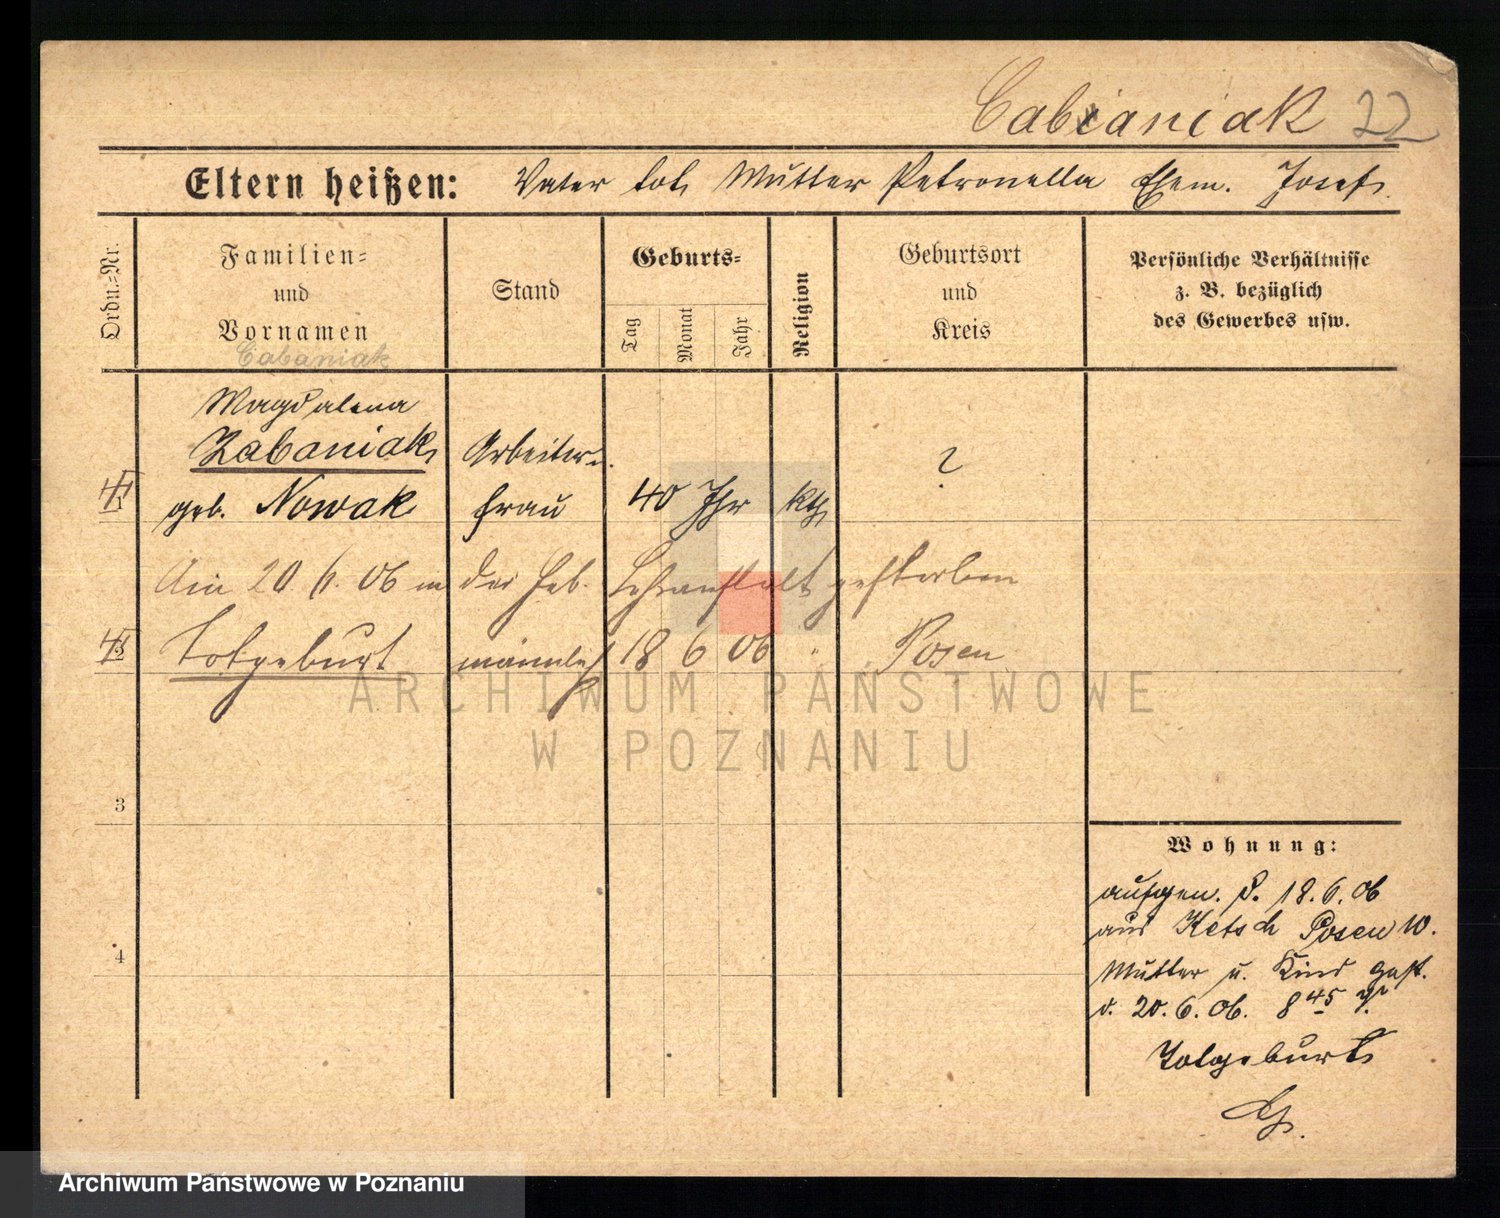 Cabaniak 22
Eltern heißen: Vater tot, Mutter Petronella Ehem. Josef.
Ordn.-Nr.
Familien-
und
Vornamen
Stand
Geburts-
Tag
Monat
Jahr
Religion
Geburtsort
und
Kreis
Persönliche Verhältnisse
z. B. bezüglich
des Gewerbes usw.
Cabaniak
Magdalena
Zabaniak, Arbeiter-
geb. Nowak frau 40 Jhr kth ?
Am 20 6. 06 in der Heb. Lehranstalt gestorben
Totgeburt männlich 18 6 06 " Posen
3
4
Wohnung:
aufgen. d. 18.6.06
aus Ketsch Posen W.
Mutter u. Kind gest.
d. 20.6.06. 8 45
Totgeburt
ARCHIWUM PAŃSTWOWE
W POZNANIU
Archiwum Państwowe w Poznaniu